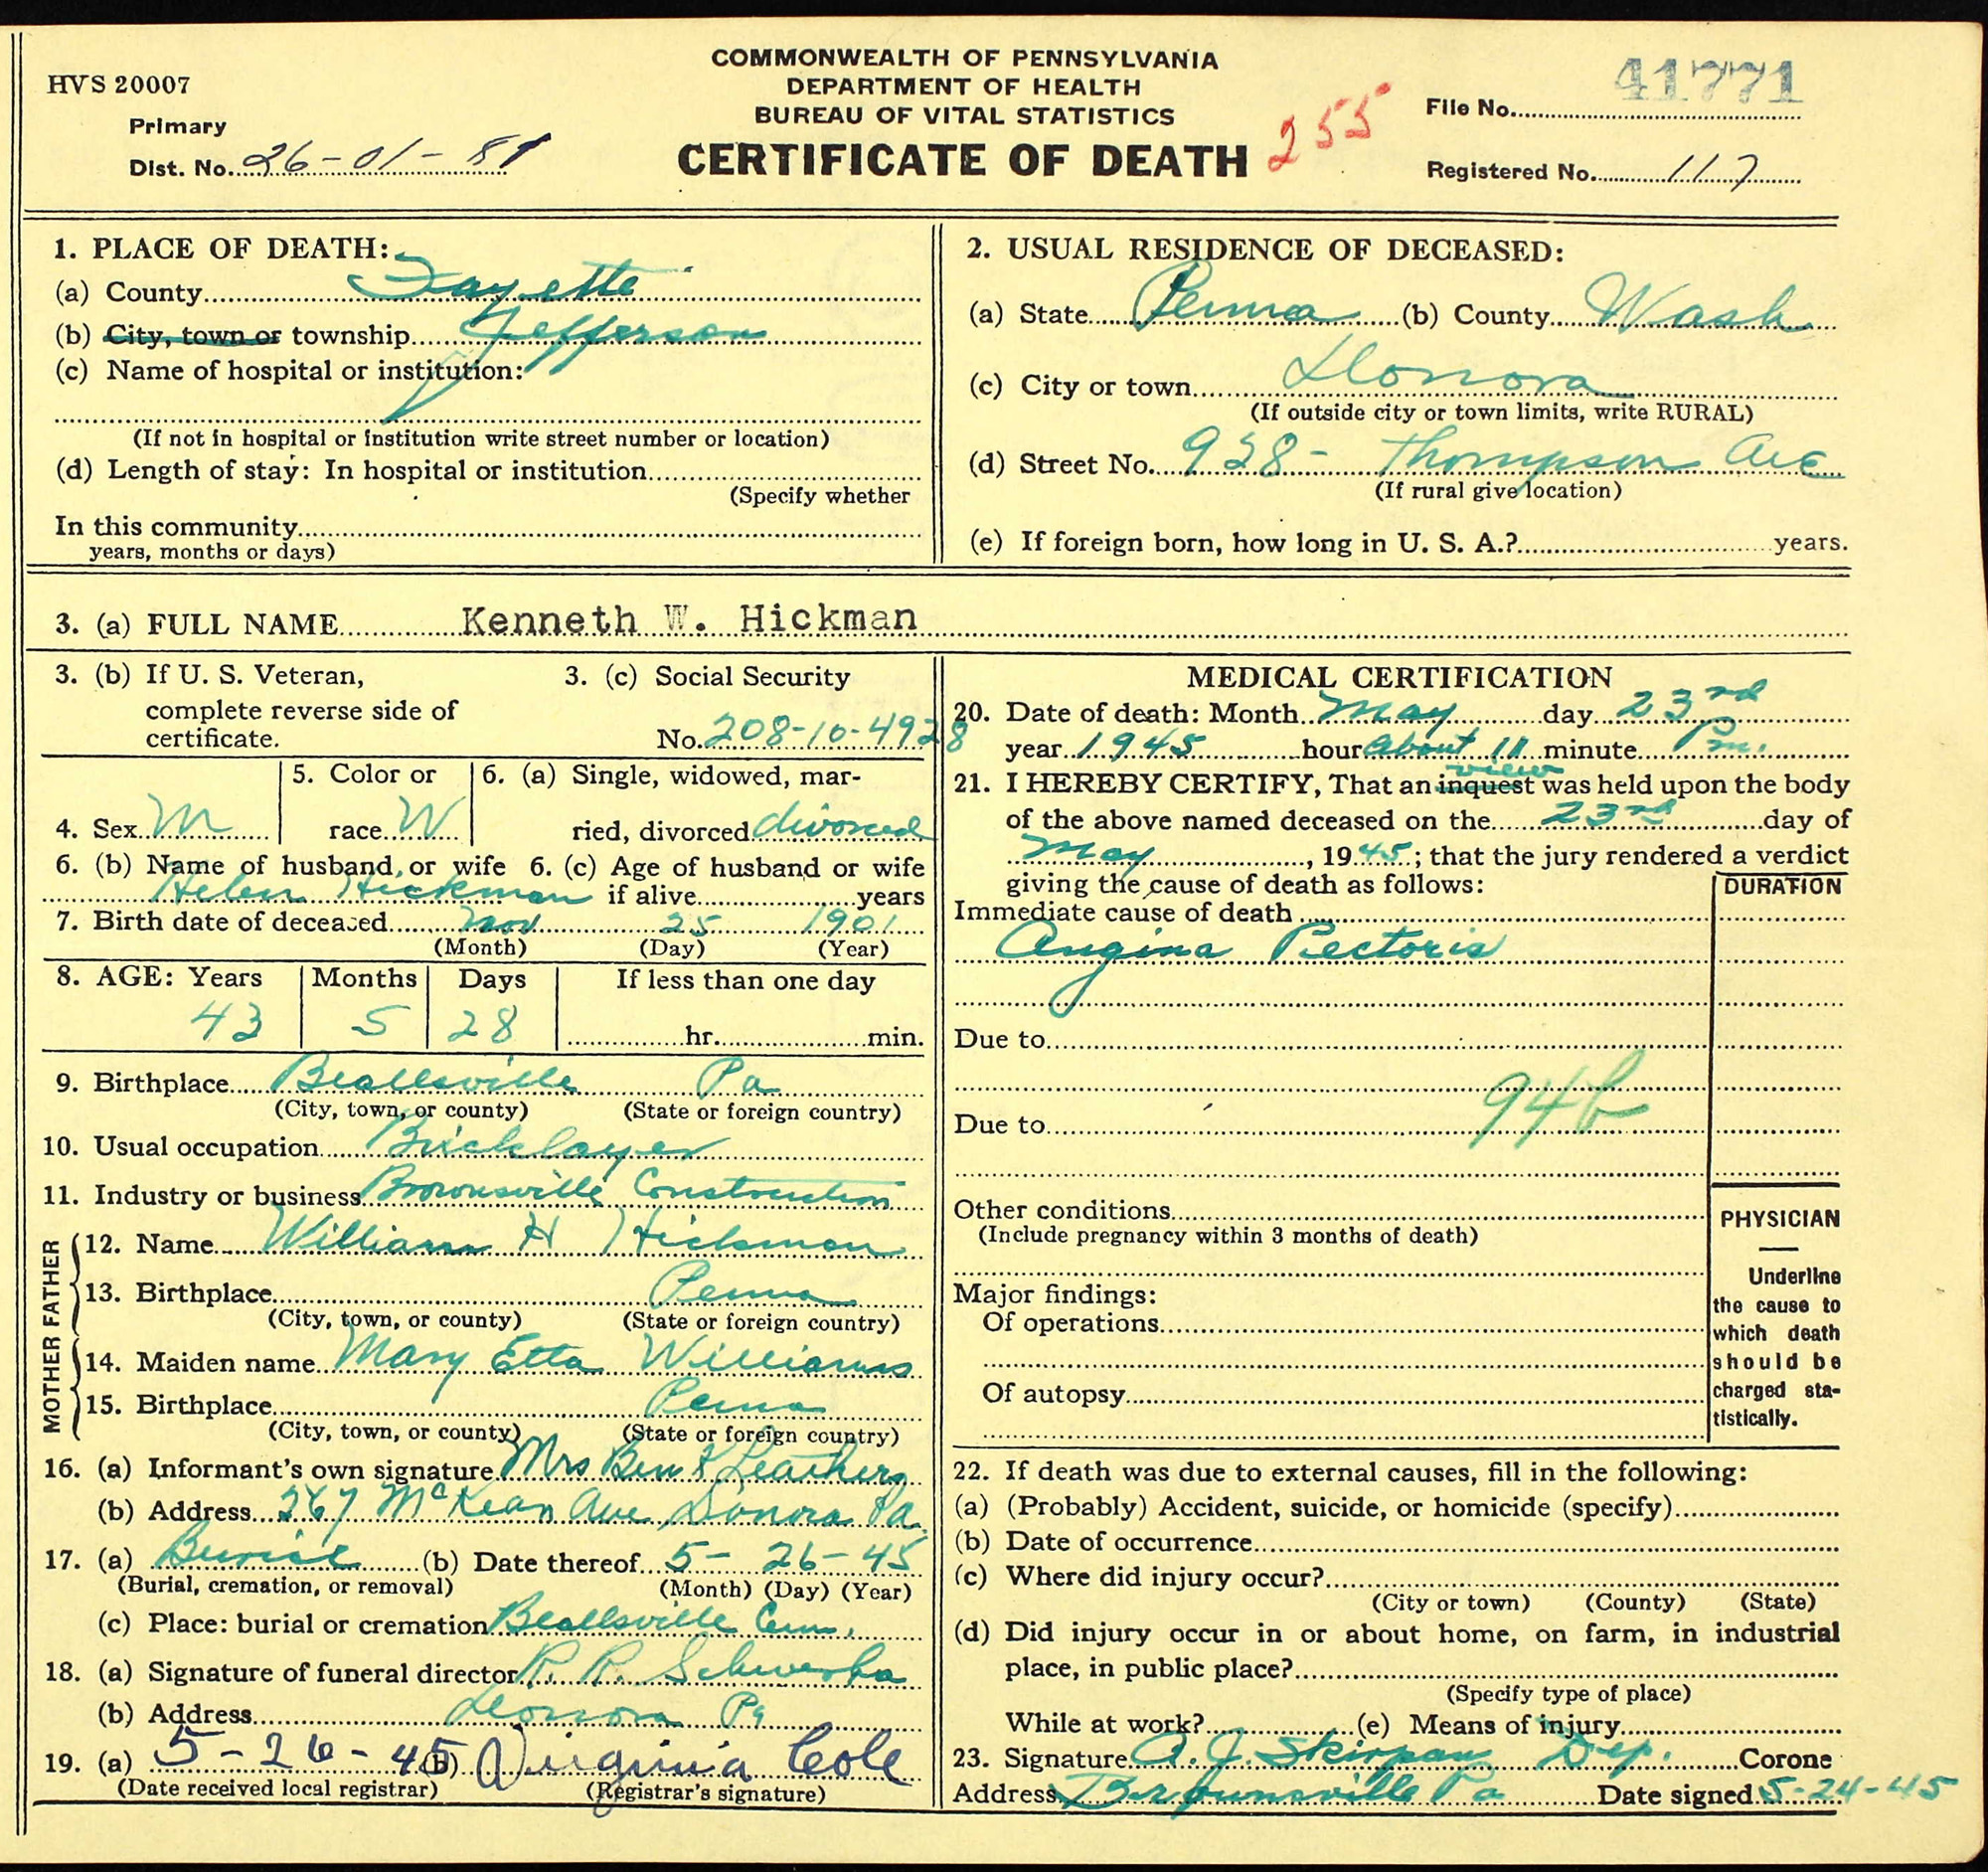 HVS 20007
COMMONWEALTH OF PENNSYLVANIA
DEPARTMENT OF HEALTH
BUREAU OF VITAL STATISTICS
CERTIFICATE OF DEATH
255
Primary
Dist. No. 26-01-
File No. 41771
Registered No. 117
1. PLACE OF DEATH:
(a) County Fayette
(b) City, town or township Jefferson
(c) Name of hospital or institution:
(If not in hospital or institution write street number or location)
(d) Length of stay: In hospital or institution
(Specify whether
In this community
years, months or days)
2. USUAL RESIDENCE OF DECEASED:
(a) State Penna (b) County Wash
(c) City or town Donora
(If outside city or town limits, write RURAL)
(d) Street No. 928- Thompson Ave
(If rural give location)
(e) If foreign born, how long in U. S. A.? years.
3. (a) FULL NAME Kenneth W. Hickman
3. (b) If U. S. Veteran,
complete reverse side of
certificate.
3. (c) Social Security
No. 208-10-4928
4. Sex M
5. Color or
race W
6. (a) Single, widowed, mar-
ried, divorced divorced
6. (b) Name of husband or wife 6. (c) Age of husband or wife
Helen Hickman if alive years
7. Birth date of deceased Nov 25 1901
(Month) (Day) (Year)
8. AGE: Years Months Days If less than one day
43 5 28 hr. min.
9. Birthplace Beallsville Pa
(City, town, or county) (State or foreign country)
10. Usual occupation Bricklayer
11. Industry or business Brownsville Construction
FATHER
12. Name William H Hickman
13. Birthplace Penna
(City, town, or county) (State or foreign country)
MOTHER
14. Maiden name Mary Etta Williams
15. Birthplace Penna
(City, town, or county) (State or foreign country)
16. (a) Informant's own signature Mrs Ben F Leathers
(b) Address 267 McKean Ave Donora Pa.
17. (a) Burial (b) Date thereof 5- 26- 45
(Burial, cremation, or removal) (Month) (Day) (Year)
(c) Place: burial or cremation Beallsville Cem.
18. (a) Signature of funeral director R. R. Schwerha
(b) Address Donora Pa
19. (a) 5-26-45 (b) Virginia Cole
(Date received local registrar) (Registrar's signature)
MEDICAL CERTIFICATION
20. Date of death: Month May day 23rd
year 1945 hour about 11 minute Pm.
view
21. I HEREBY CERTIFY, That an inquest was held upon the body
of the above named deceased on the 23rd day of
May, 1945; that the jury rendered a verdict
giving the cause of death as follows:
DURATION
Immediate cause of death
Angina Pectoris
Due to
94b
Due to
Other conditions
(Include pregnancy within 3 months of death)
Major findings:
Of operations
Of autopsy
PHYSICIAN
Underline
the cause to
which death
should be
charged sta-
tistically.
22. If death was due to external causes, fill in the following:
(a) (Probably) Accident, suicide, or homicide (specify)
(b) Date of occurrence
(c) Where did injury occur?
(City or town) (County) (State)
(d) Did injury occur in or about home, on farm, in industrial
place, in public place?
(Specify type of place)
While at work? (e) Means of injury
23. Signature A. J. Skirpan Dep. Corone
Address Brownsville Pa Date signed 5-24-45